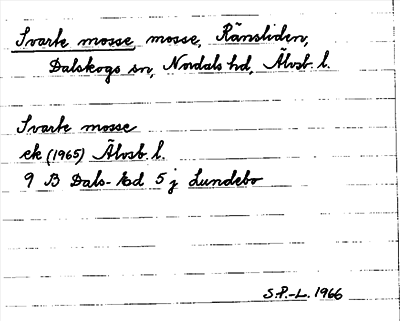 Svarte mosse, mosse, Ränsliden,
Dalskogs sn, Nordals hd, Älvsb. l.
Svarte mosse
ek (1965) Älvsb. l.
9 B Dals-Ed 5 j Lundebo
S.P.-L. 1966